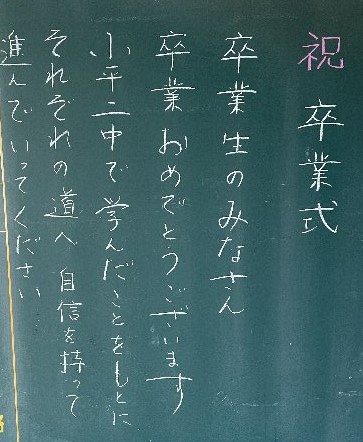 祝 卒業式
卒業生のみなさん
卒業おめでとうございます
小平二中で学んだことをもとに
それぞれの道へ 自信を持って
進んでいってください